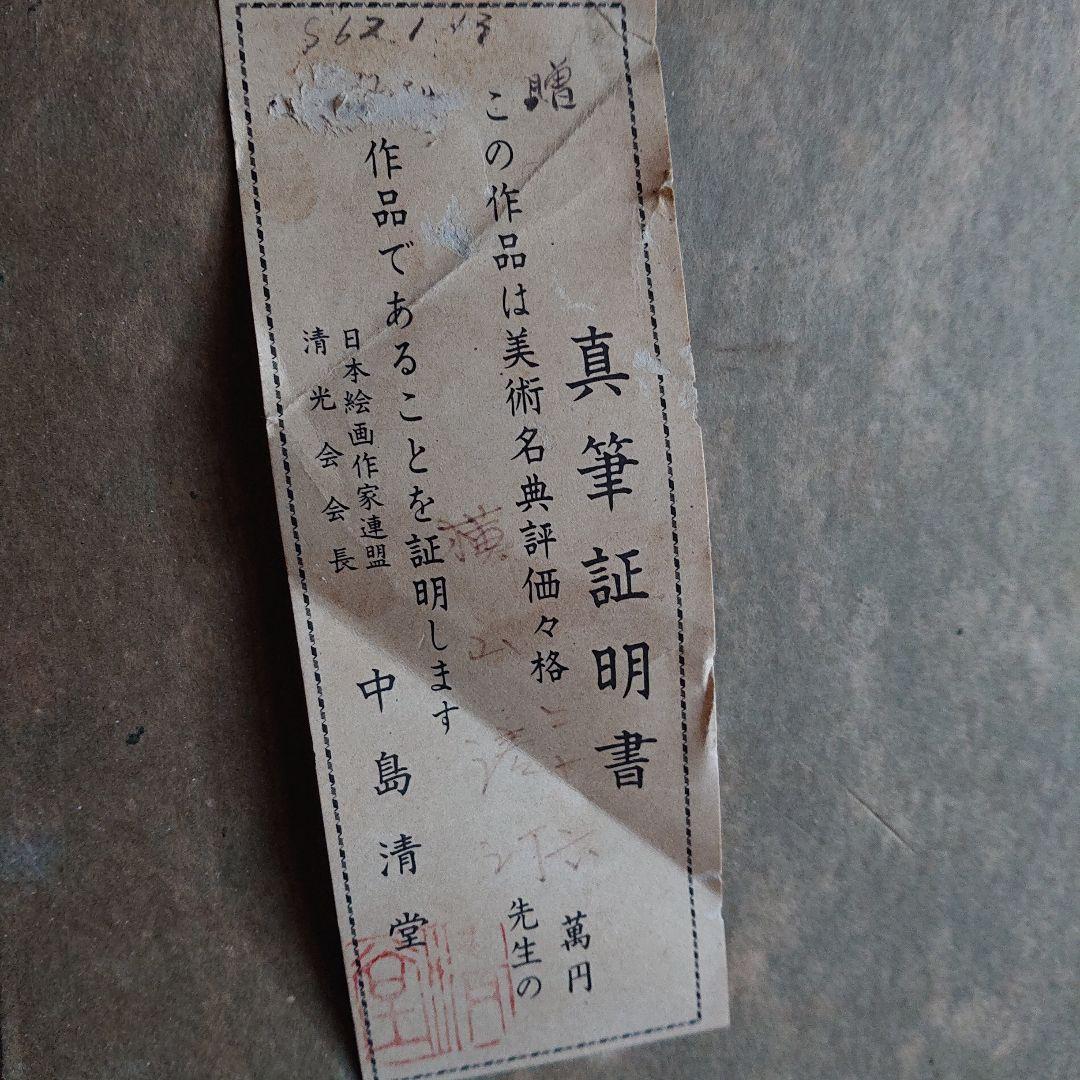 S62.1.13
贈
真筆証明書
この作品は美術名典評価々格
萬円
横山
先生の
作品であることを証明します
日本絵画作家連盟
清光会会長
中島清堂